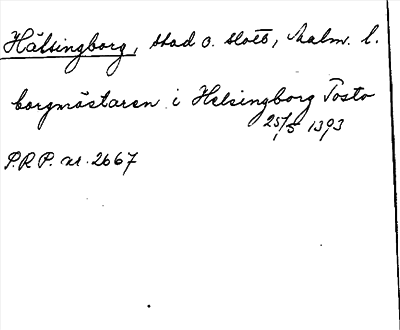 Hälsingborg, stad o. slott, Malm. l.
borgmästaren i Helsingborg Tosto
25/5 1393
P.R.P. nr. 2667